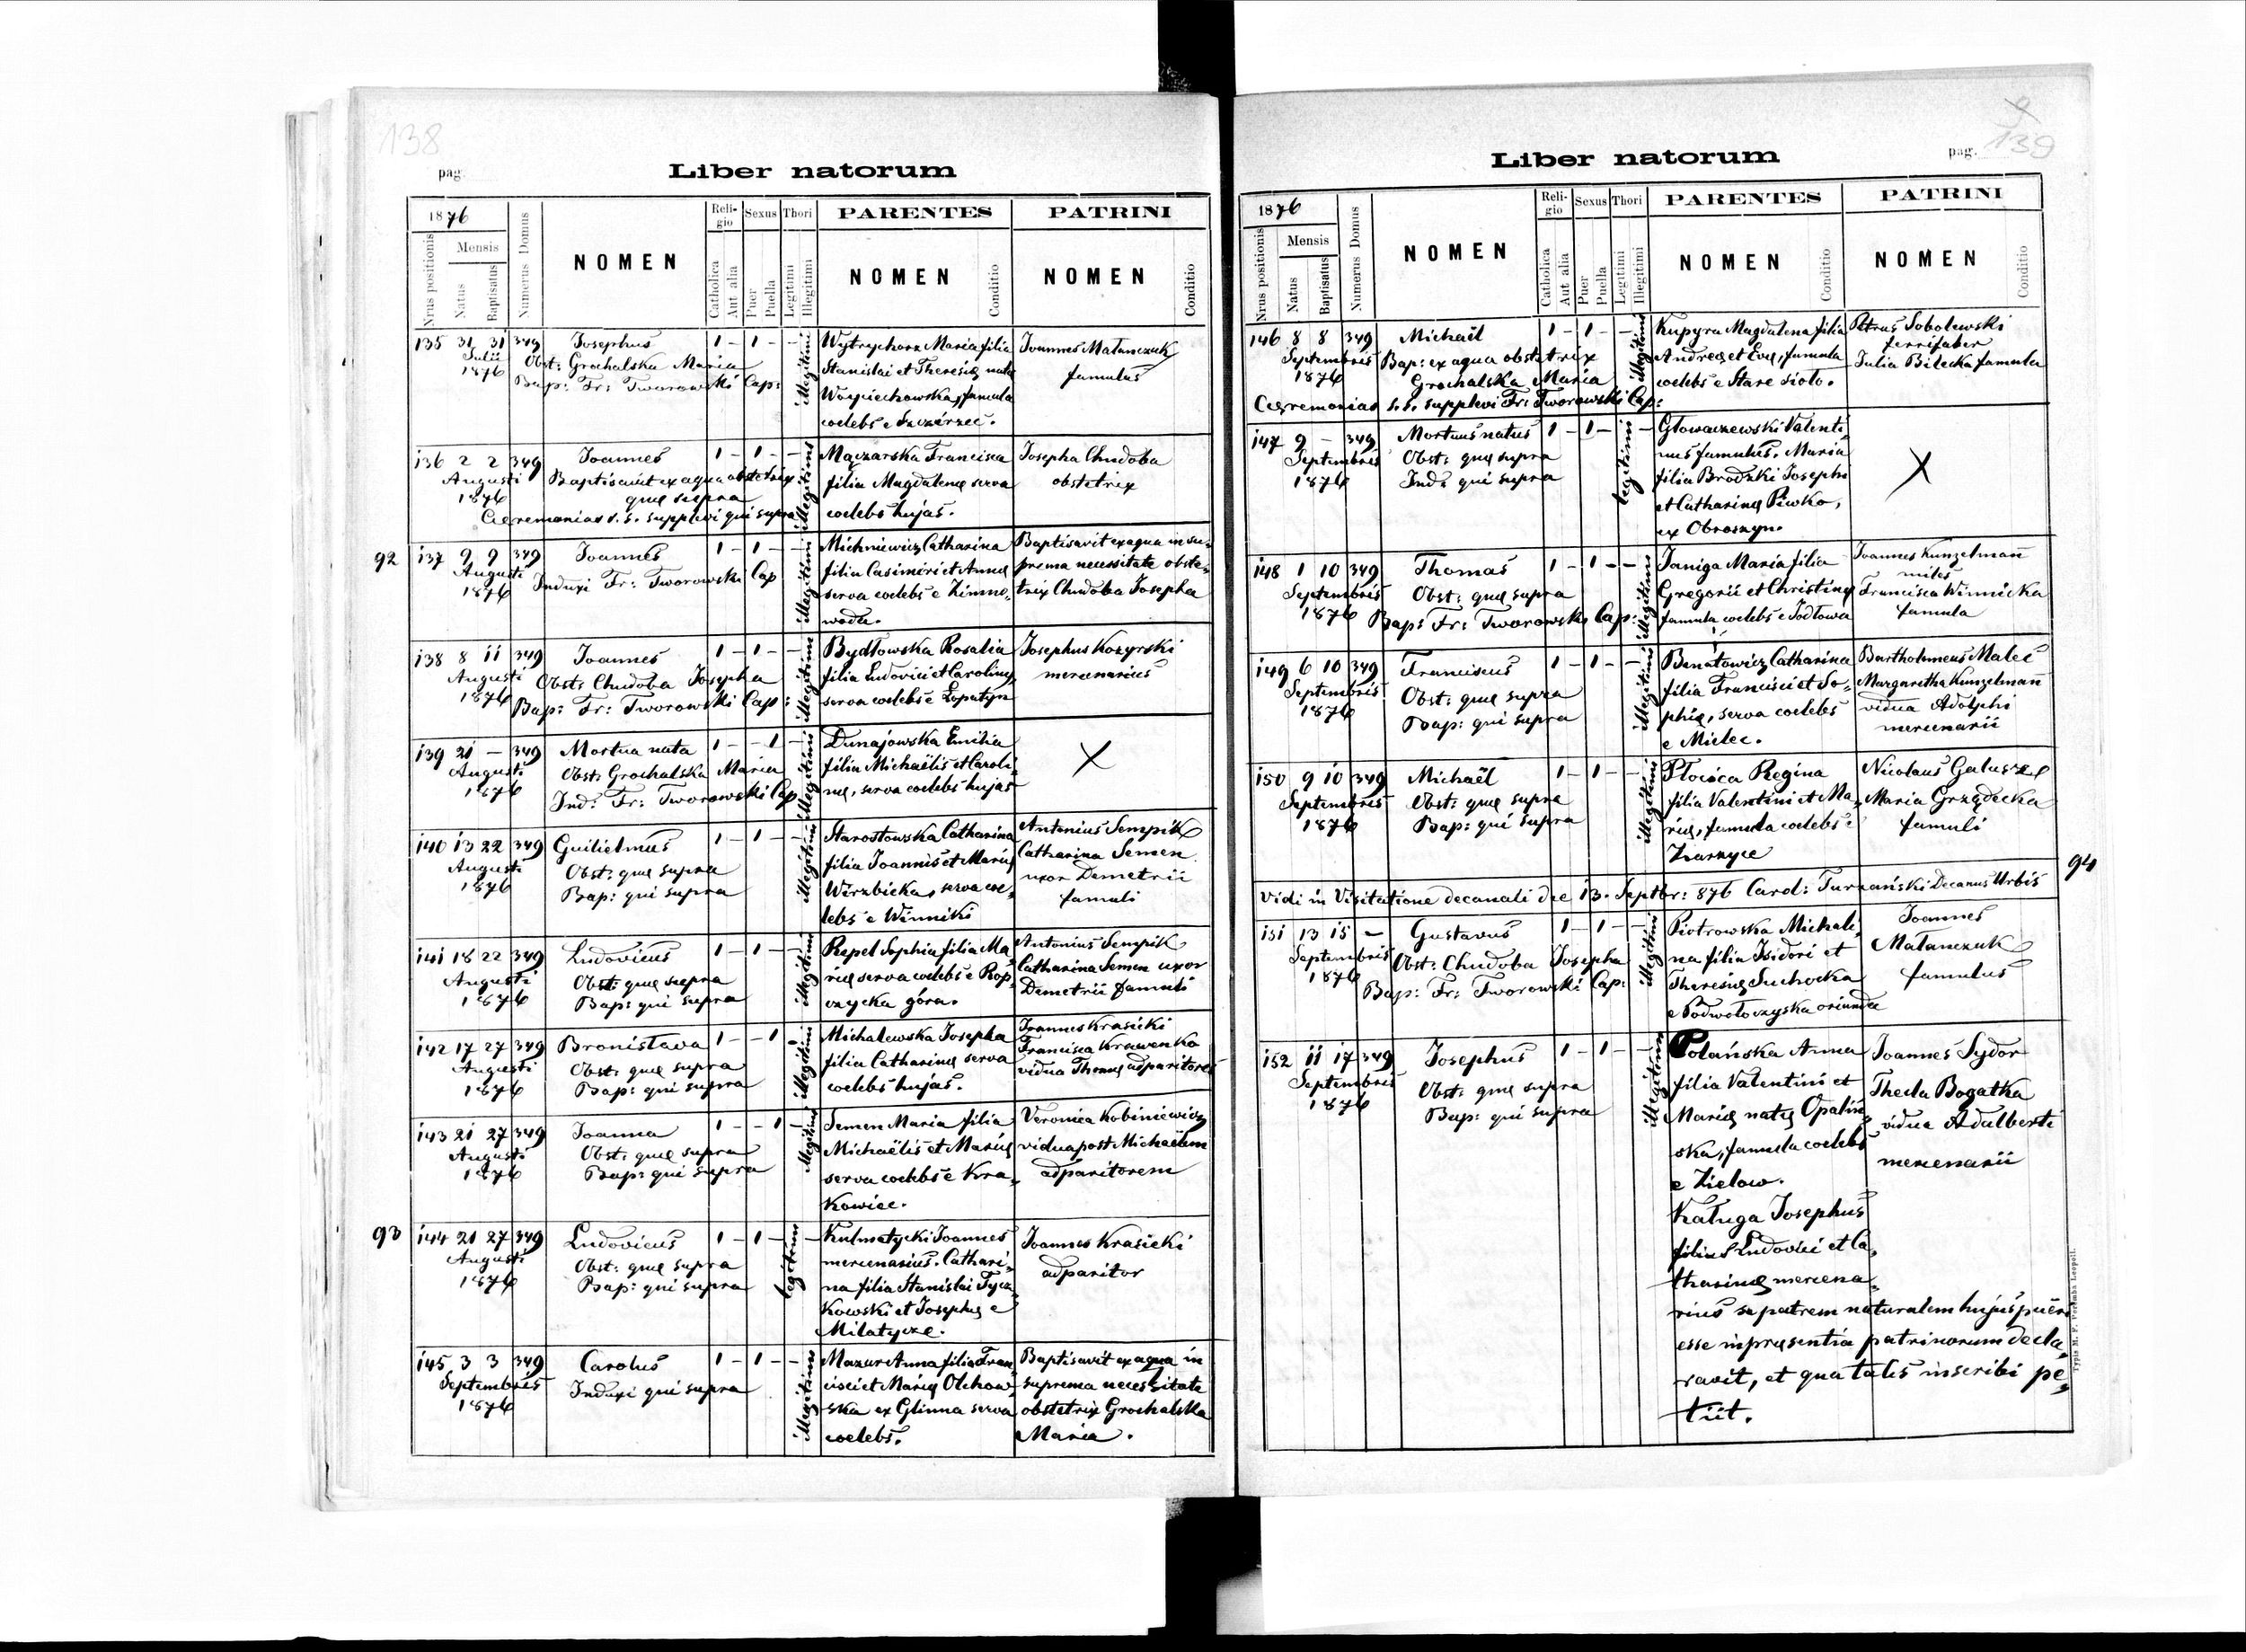 138
pag.
Liber natorum
1876
Nrus positionis
Mensis
Natus
Baptisatus
Numerus Domus
NOMEN
Religio
Catholica
Aut alia
Sexus
Puer
Puella
Thori
Legitimi
Illegitimi
PARENTES
NOMEN
Conditio
PATRINI
NOMEN
Conditio
135 31 31 349 Josephus 1 – 1 – – illegitimi
Julii
1876
Obst: Grochalska Maria
Bap: Fr: Tworowski Cap:
Wytrychorz Maria filia
Stanislai et Theresię natę
Woyciechowska, famula
coelebs e Szczérzec.
Joannes Matanczuk
famulus
136 2 2 349 Joannes 1 – 1 – – illegitimi
Augusti
1876
Baptisavit ex aqua obstetrix
quę supra
Cęremonias s. s. supplevi qui supra
Mączarska Francisca
filia Magdalenę serva
coelebs hujas.
Josepha Chudoba
obstetrix
92
137 9 9 349 Joannes 1 – 1 – – illegitimi
Augusti
1876
Induxi Fr: Tworowski Cap
Michniewicz Catharina
filia Casimiri et Annę
serva coelebs e Zimno-
woda.
Baptisavit ex aqua in su-
prema necessitate obste-
trix Chudoba Josepha
138 8 11 349 Joannes 1 – 1 – – illegitimi
Augusti
1876
Obst: Chudoba Josepha
Bap: Fr: Tworowski Cap:
Bydłowska Rosalia
filia Ludovici et Carolinę
serva coelebs e Łopatyn
Josephus Kozyrski
mercenarius
139 21 – 349 Mortua nata 1 – – 1 – illegitimi
Augusti
1876
Obst: Grochalska Maria
Ind: Fr: Tworowski Cap
Dunajowska Emilia
filia Michaëlis et Caroli-
nę, serva coelebs hujas
X
140 13 22 349 Guilielmus 1 – 1 – – illegitimi
Augusti
1876
Obst: quę supra
Bap: qui supra
Starostowska Catharina
filia Joannis et Marię
Wierzbicka, serva coe-
lebs e Winniki
Antonius Sempik
Catharina Semen
uxor Demetrii
famuli
141 18 22 349 Ludovicus 1 – 1 – – illegitimi
Augusti
1876
Obst: quę supra
Bap: qui supra
Repel Sophia filia Ma-
rię serva coelebs e Rop-
czycka góra.
Antonius Sempik
Catharina Semen uxor
Demetrii famuli
142 17 27 349 Bronislava 1 – – 1 – illegitimi
Augusti
1876
Obst: quę supra
Bap: qui supra
Michalewska Josepha
filia Catharinę serva
coelebs hujas.
Joannes Krasicki
Francisca Krawenko
vidua Thomę adparitores
143 21 27 349 Joanna 1 – – 1 – illegitimi
Augusti
1876
Obst: quę supra
Bap: qui supra
Semen Maria filia
Michaëlis et Marię
serva coelebs e Kra-
kowiec.
Veronica Kobiniewicz
vidua post Michaëlem
adparitorem
93
144 21 27 349 Ludovicus 1 – 1 – legitimi –
Augusti
1876
Obst: quę supra
Bap: qui supra
Kulmatycki Joannes
mercenarius. Cathari-
na filia Stanislai Tycz-
kowski et Josephę e
Milatycze.
Joannes Krasicki
adparitor
145 3 3 349 Carolus 1 – 1 – – illegitimi
Septembris
1876
Induxi qui supra
Mazur Anna filia Fran-
cisci et Marię Olchow-
ska ex Glinna serva
coelebs.
Baptisavit ex aqua in
suprema necessitate
obstetrix Grochalska
Maria.
9
139
pag.
Liber natorum
1876
Nrus positionis
Mensis
Natus
Baptisatus
Numerus Domus
NOMEN
Religio
Catholica
Aut alia
Sexus
Puer
Puella
Thori
Legitimi
Illegitimi
PARENTES
NOMEN
Conditio
PATRINI
NOMEN
Conditio
146 8 8 349 Michaël 1 – 1 – – illegitimi
Septembris
1876
Bap: ex aqua obstetrix
Grochalska Maria
Cęremonias s. s. supplevi Fr: Tworowski Cap:
Kupyra Magdalena filia
Andreę et Evę, famula
coelebs e Stare sioło.
Petrus Sobolewski
ferrifaber
Julia Bilecka famula
147 9 – 349 Mortuus natus 1 – 1 – legitimi –
Septembris
1876
Obst: quę supra
Ind: qui supra
Głowaczewski Valenti-
nus famulus. Maria
filia Brodzki Josephi
et Catharinę Piwko,
ex Obroszyn.
X
148 1 10 349 Thomas 1 – 1 – – illegitimi
Septembris
1876
Obst: quę supra
Bap: Fr: Tworowski Cap:
Janiga Maria filia
Gregorii et Christinę
famula coelebs e Jodłowa
Joannes Kunzelmann
miles
Francisca Winnicka
famula
149 6 10 349 Franciscus 1 – 1 – – illegitimi
Septembris
1876
Obst: quę supra
Bap: qui supra
Benatowicz Catharina
filia Francisci et So-
phię, serva coelebs
e Mielec.
Bartholomeus Malec
Margaretha Kunzelmann
vidua Adolphi
mercenarii
150 9 10 349 Michaël 1 – 1 – – illegitimi
Septembris
1876
Obst: quę supra
Bap: qui supra
Płocica Regina
filia Valentini et Ma-
rię, famula coelebs e
Żarnyce
Nicolaus Galuszel
Maria Grządecka
famuli
94
Vidi in Visitatione decanali die 13. Septbr: 876 Carol: Turzański Decanus Urbis
151 13 15 – Gustavus 1 – 1 – – illegitimi
Septembris
1876
Obst: Chudoba Josepha
Bap: Fr: Tworowski Cap:
Piotrowska Michali-
na filia Isidori et
Theresię Suchocka
e Podwołoczyska oriunda
Joannes
Matanczuk
famulus
152 11 17 349 Josephus 1 – 1 – – illegitimi
Septembris
1876
Obst: quę supra
Bap: qui supra
Polańska Anna
filia Valentini et
Marię natę Opaliń-
ska, famula coelebs
e Zielow.
Kaługa Josephus
filius Ludovici et Ca-
tharinę mercena-
rius se patrem naturalem hujus pueri
esse in pręsentia patrinorum decla-
ravit, et qua talis inscribi pe-
tiit.
Joannes Sydor
Thecla Bogatka
vidua Adalberti
mercenarii
Typis M. F. Poremba Leopoli.